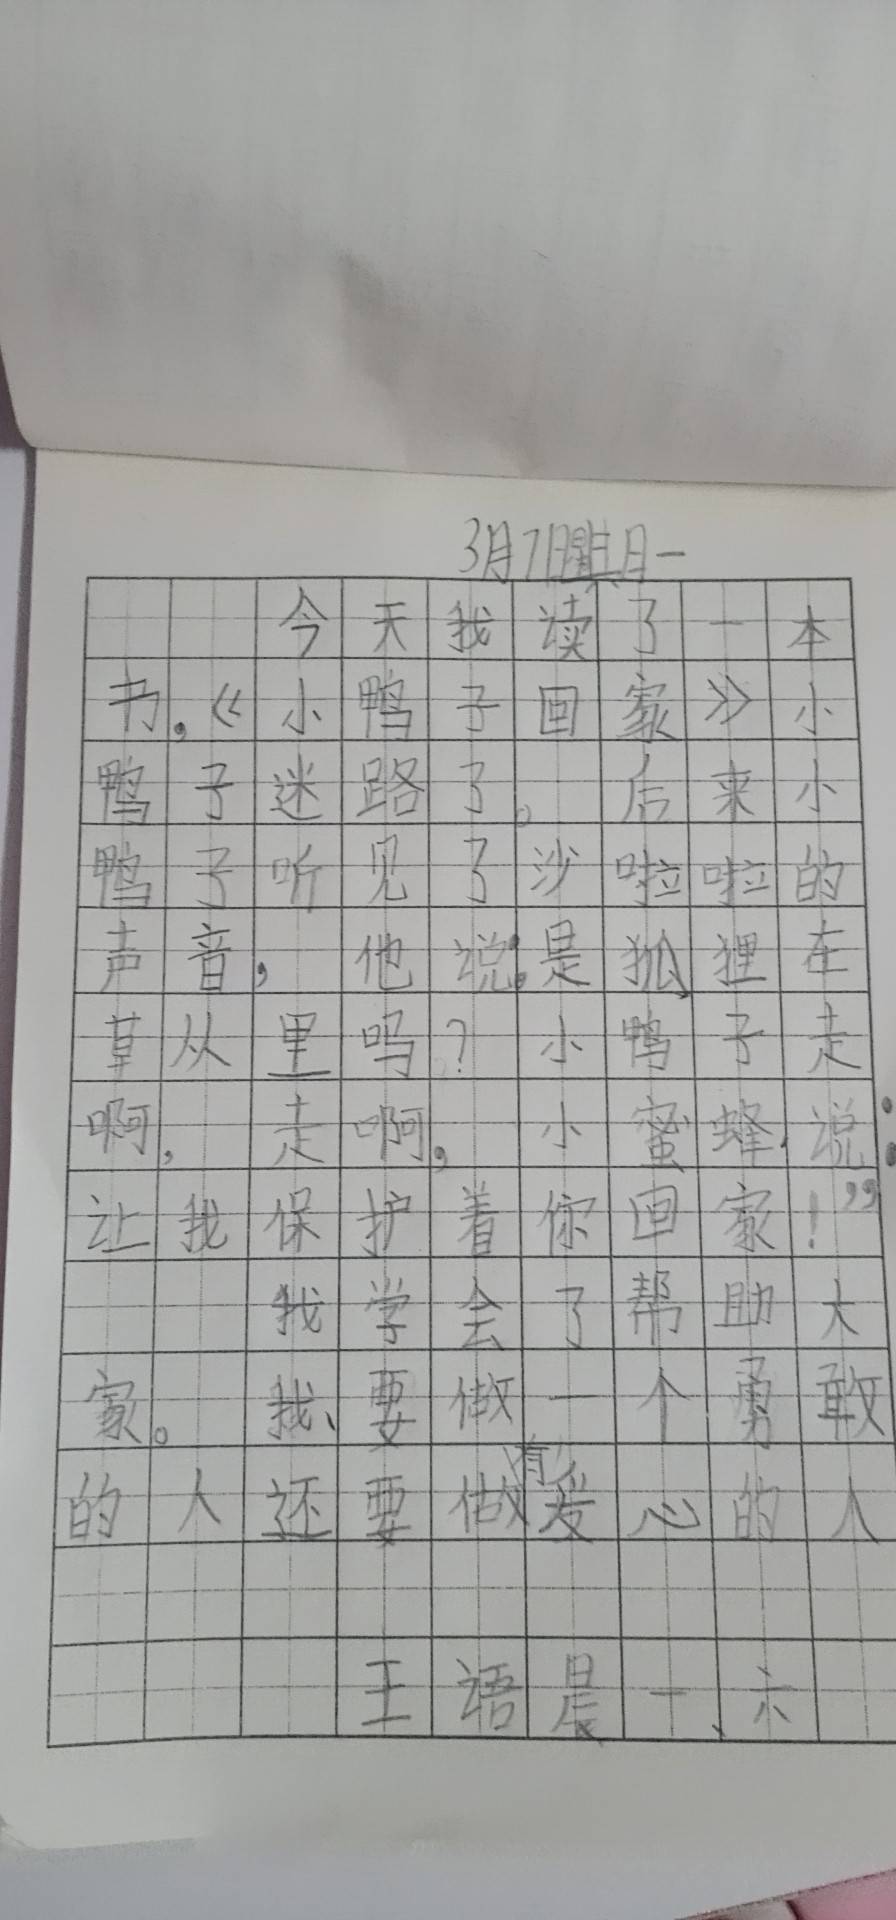 3月7日星其月一
今天我读了一本
书,《小鸭子回家》小
鸭子迷路了。后来小
鸭子听见了沙啦啦的
声音,他说:是狐狸在
草从里吗?小鸭子走
啊,走啊,小蜜蜂说:
让我保护着你回家!”
我学会了帮助大
家。我、要做一个勇敢
的人还要做有爱心的人
王语晨一、六